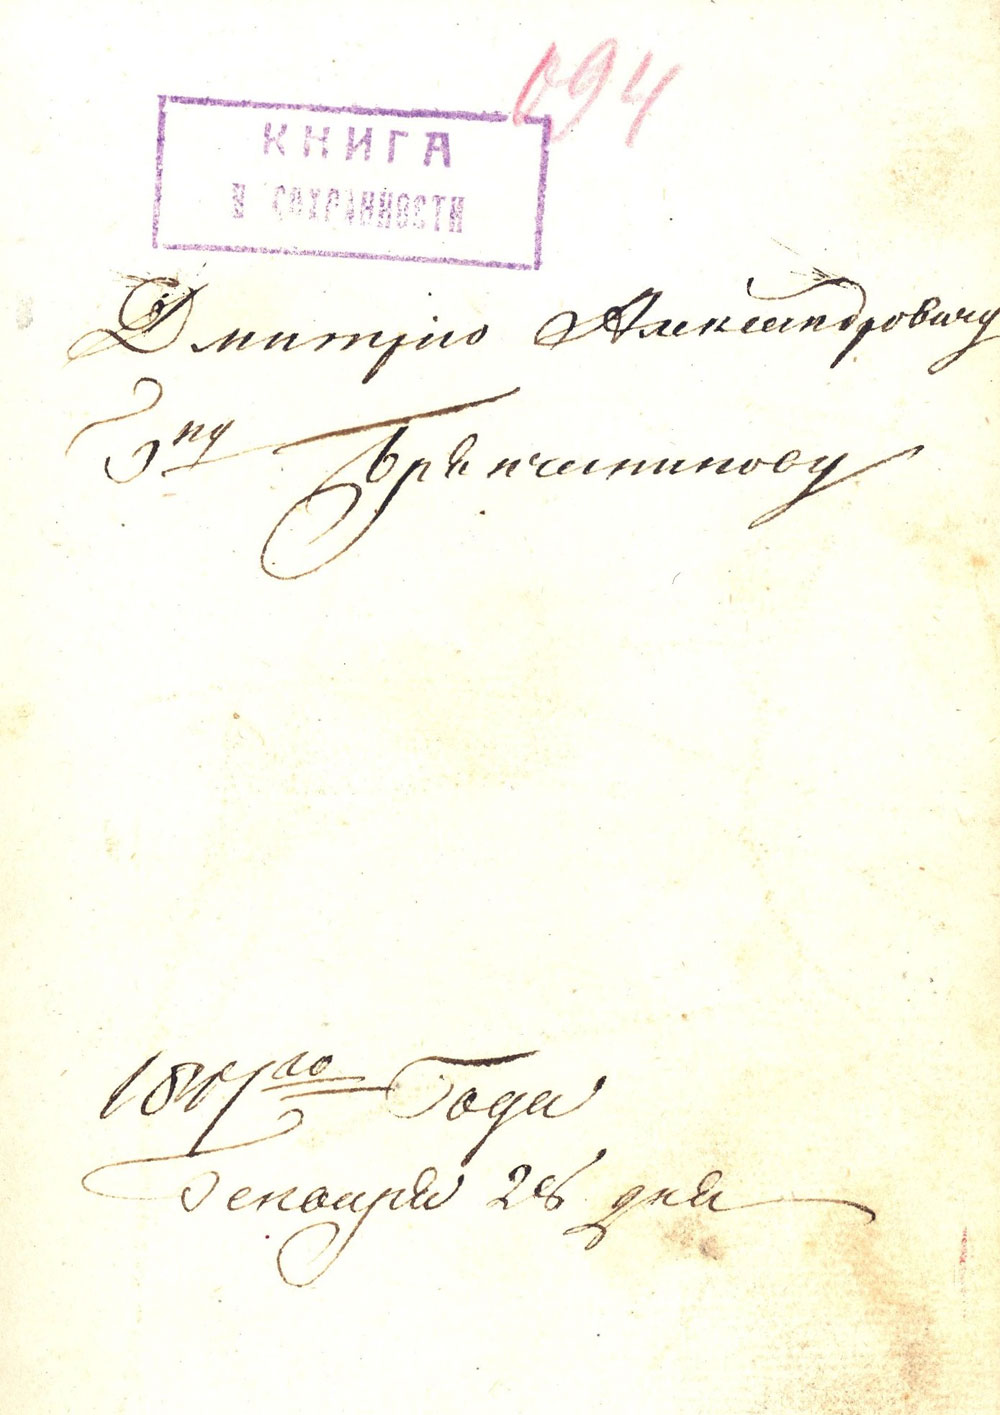 094
КНИГА
В СОХРАННОСТИ
Дмитрію Александровичу
Гну Брянчанинову
1817го Года
Декабря 28 дня